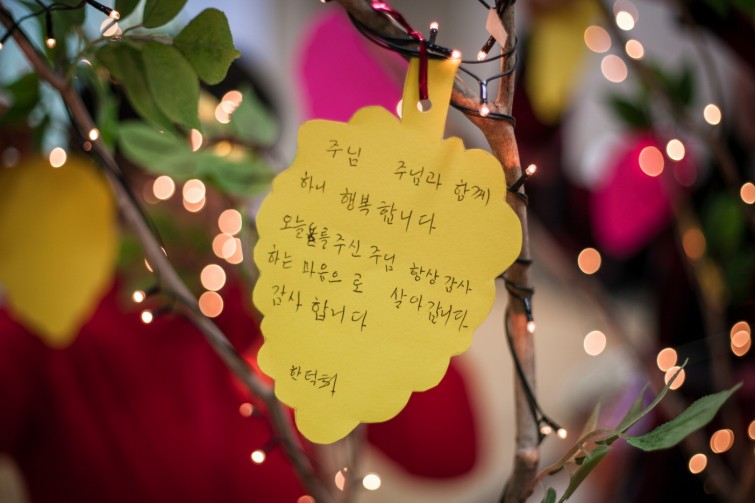 주님 주님과 함께
하니 행복합니다
오늘을 주신 주님 항상 감사
하는 마음으로 살아갑니다.
감사합니다
한덕화